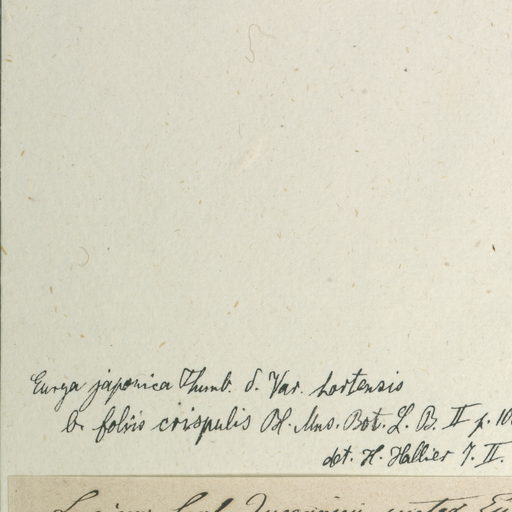 Eurya japonica Thunb. δ. Var. hortensis
b. foliis crispulis Bl. Mus. Bot. L. B. II p. 10
det. H. Hallier 7. II.